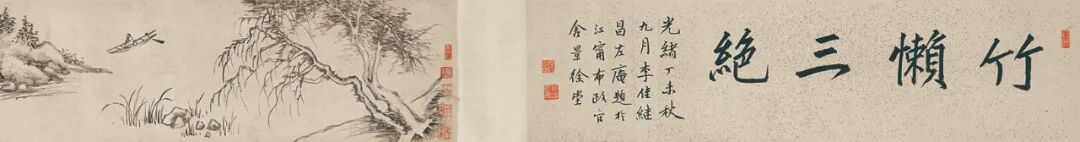 竹懶三絕
光緒丁未秋
九月李佳継
昌左庵題於
江甯布政官
舍景徐堂